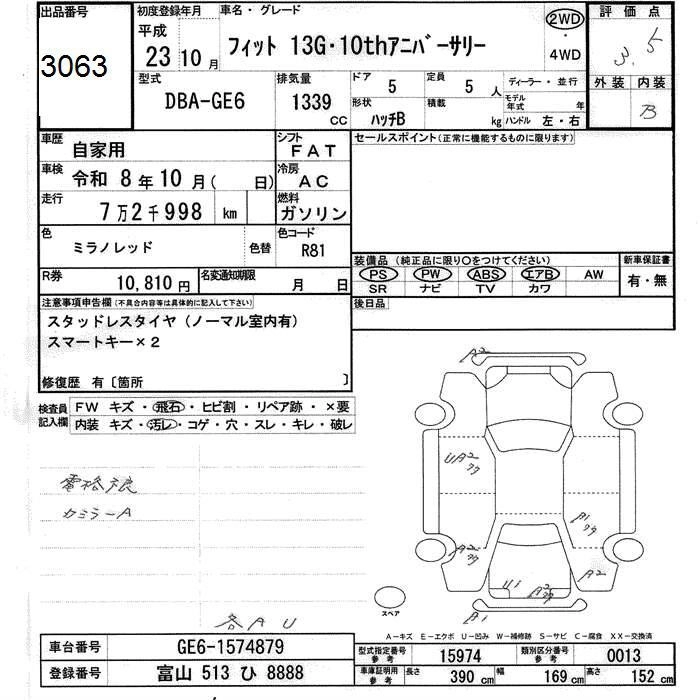 出品番号
3063
初度登録年月
平成
23 10 月
車名・グレード
フィット 13G・10thアニバーサリー
2WD
・
4WD
評価点
3.5
外装 内装
B
型式
DBA-GE6
排気量
1339
CC
ドア
5
定員
5 人
形状
ハッチB
積載
kg
ディーラー・並行
モデル
年式
年
ハンドル 左・右
車歴
自家用
シフト
FAT
車検
令和 8年10月( 日)
冷房
AC
走行
7万2千998 km
燃料
ガソリン
色
ミラノレッド
色替
色コード
R81
R券
10,810 円
名変通知期限
月 日
セールスポイント(正常に機能するものに限ります)
装備品(純正品に限り○をつけてください)
PS PW ABS エアB AW
SR ナビ TV カワ
新車保証書
有・無
後日品
注意事項申告欄(不具合内容等は具体的に記入して下さい)
スタッドレスタイヤ(ノーマル室内有)
スマートキー×2
修復歴 有〔箇所 〕
検査員
記入欄
FW キズ・飛石・ヒビ割・リペア跡・×要
内装 キズ・汚レ・コゲ・穴・スレ・キレ・破レ
電格不良
カミラーA
各AU
A2
UA2
クク
A1
クク
A2
クク
A2
U1
A2
クク
A1
スペア
A-キズ E-エクボ U-凹み W-補修跡 S-サビ C-腐食 XX-交換済
車台番号
GE6-1574879
登録番号
富山 513 ひ 8888
型式指定番号
参考
15974
類別区分番号
参考
0013
車庫証明用
参考
長さ
390 cm
幅
169 cm
高さ
152 cm